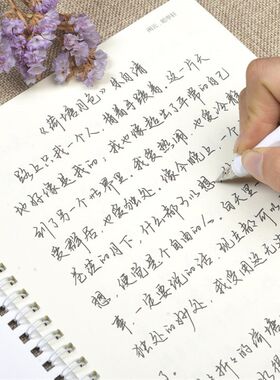 《荷塘月色》朱自清
路上只我一个人，背着手踱着。这一片天
地好像是我的；我也像超出了平常的自己
到了另一个世界里。我爱热闹，也爱冷静
爱群居，也爱独处。像今晚上，一个
苍茫的月下，什么都可以想
想，便觉是个自由的人。白天里
事，一定要说的话，现在都可
独处的妙处，我且受用这无
了。
折的荷塘